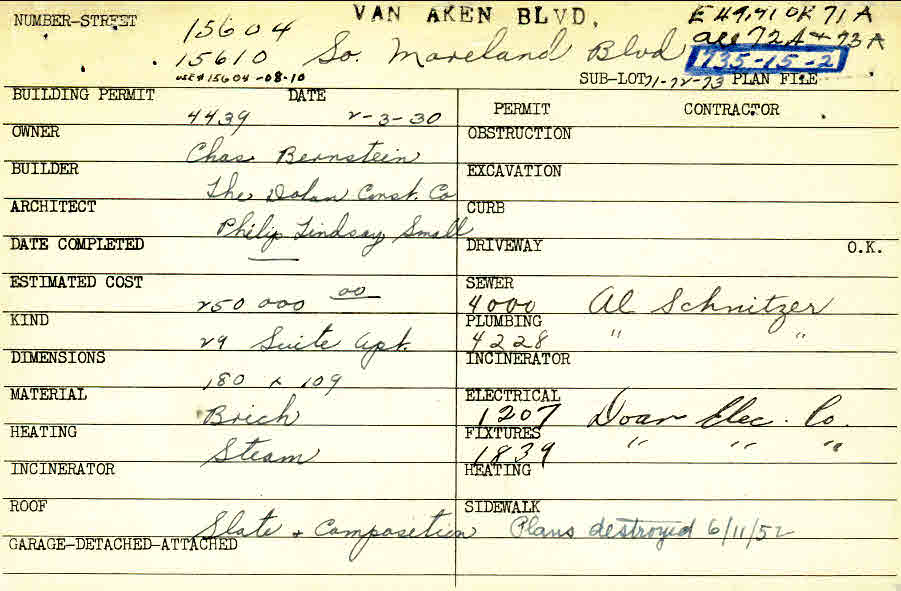 NUMBER-STREET 15604 VAN AKEN BLVD. E 49.91 OR 71 A
15610 So. Moreland Blvd all 72A + 73A
735-15-2
USE # 15604-08-10 SUB-LOT 71-72-73 PLAN FILE
BUILDING PERMIT DATE
4439 2-3-30
OWNER
Chas Bernstein
BUILDER
The Dolan Const. Co
ARCHITECT
Philip Lindsay Small
DATE COMPLETED
ESTIMATED COST
250 000 00
KIND
29 Suite Apt.
DIMENSIONS
180 x 109
MATERIAL
Brick
HEATING
Steam
INCINERATOR
ROOF
Slate + Composition
GARAGE-DETACHED-ATTACHED
PERMIT CONTRACTOR
OBSTRUCTION
EXCAVATION
CURB
DRIVEWAY O.K.
SEWER
4000 Al Schnitzer
PLUMBING
4228 " "
INCINERATOR
ELECTRICAL
1207 Doan Elec. Co.
FIXTURES
1839 " " "
HEATING
SIDEWALK
Plans destroyed 6/11/52